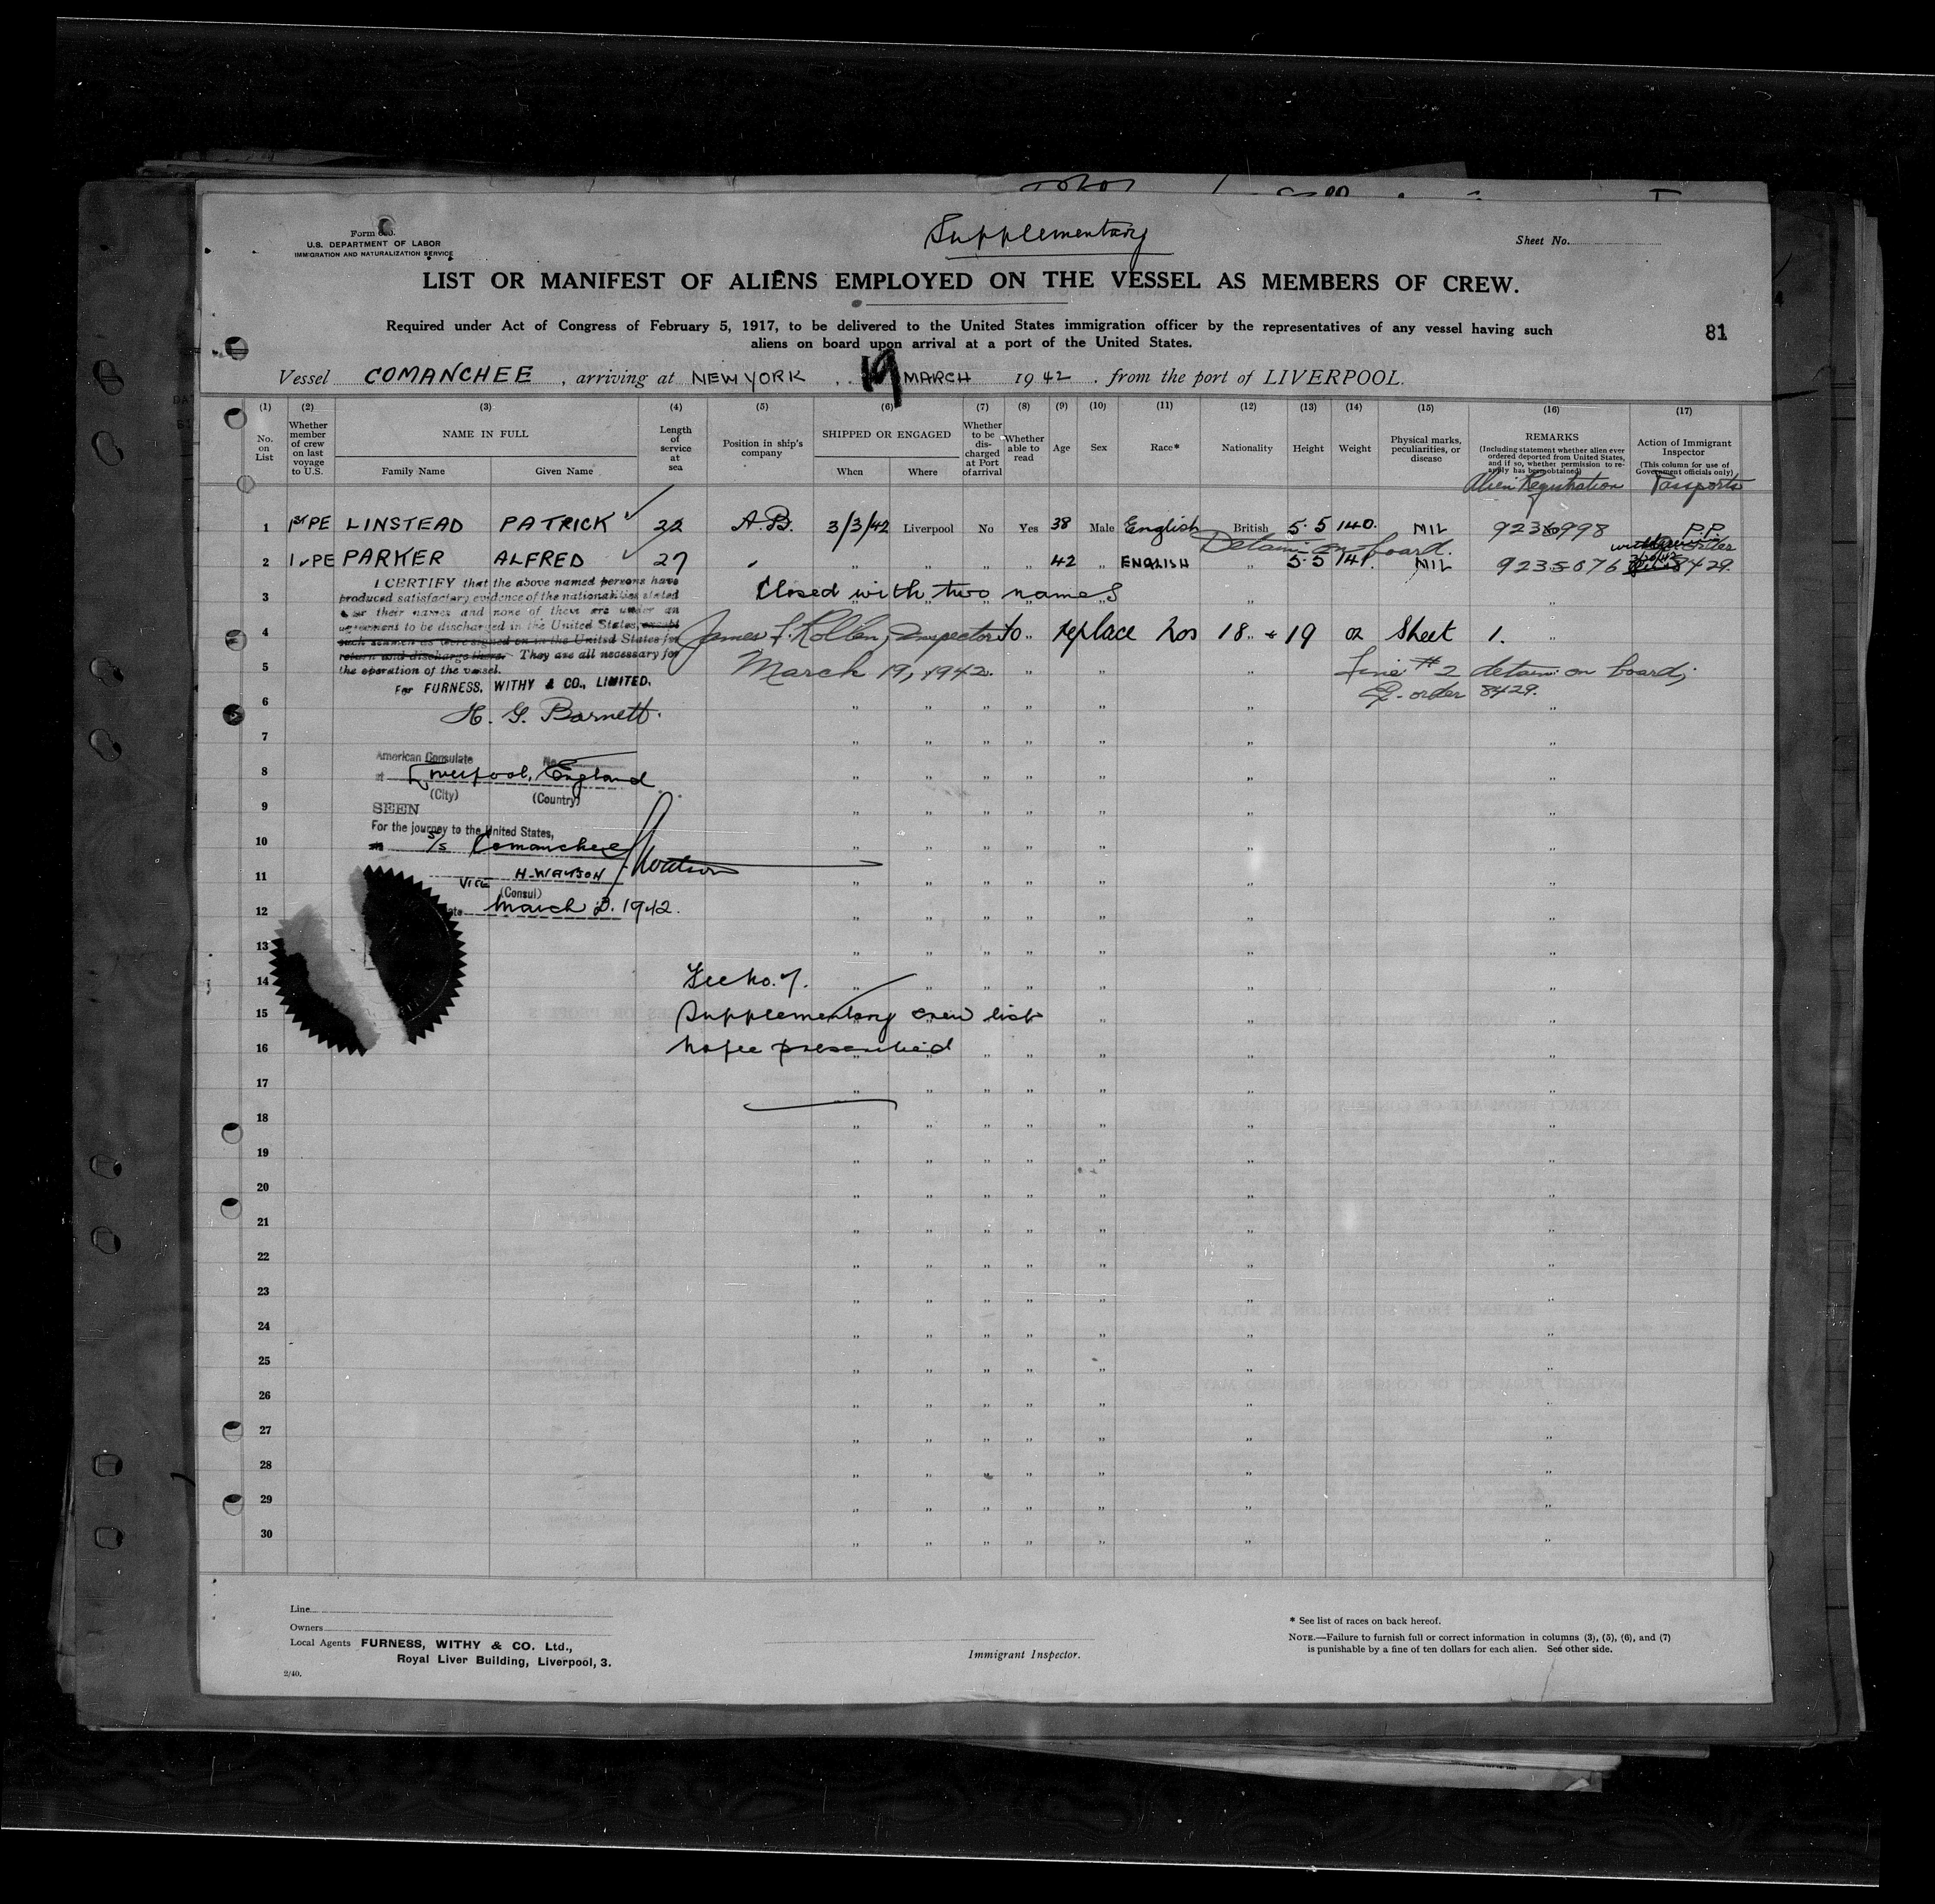 Supplementary
Form 680.
U.S. DEPARTMENT OF LABOR
IMMIGRATION AND NATURALIZATION SERVICE
Sheet No.
LIST OR MANIFEST OF ALIENS EMPLOYED ON THE VESSEL AS MEMBERS OF CREW.
Required under Act of Congress of February 5, 1917, to be delivered to the United States immigration officer by the representatives of any vessel having such
aliens on board upon arrival at a port of the United States.
81
Vessel COMANCHEE , arriving at NEW YORK , 19 MARCH 1942 , from the port of LIVERPOOL.
(1) (2) (3) (4) (5) (6) (7) (8) (9) (10) (11) (12) (13) (14) (15) (16) (17)
No. on List
Whether member of crew on last voyage to U.S.
NAME IN FULL
Family Name Given Name
Length of service at sea
Position in ship's company
SHIPPED OR ENGAGED
When Where
Whether to be discharged at Port of arrival
Whether able to read
Age
Sex
Race*
Nationality
Height
Weight
Physical marks, peculiarities, or disease
REMARKS
(Including statement whether alien ever ordered deported from United States, and if so, whether permission to reapply has been obtained)
Alien Registration
Action of Immigrant Inspector
(This column for use of Government officials only)
Passports
1 PE LINSTEAD PATRICK 22 A.B. 3/3/42 Liverpool No Yes 38 Male English British 5.5 140. NIL P.P.
Detain on board.
2 PE PARKER ALFRED 27 " " " " " 42 " ENGLISH " 5.5 141. NIL 9235076 8429.
I CERTIFY that the above named persons have
produced satisfactory evidence of the nationalities stated
their names and none of them are under an
agreement to be discharged in the United States, except
such seamen as were signed on in the United States for
return and discharge there. They are all necessary for
the operation of the vessel.
For FURNESS, WITHY & CO., LIMITED.
H. G. Barnett.
3 Closed with two names
4 James F. Inspector to replace Nos 18 & 19 on Sheet 1.
5 March 19, 1942. Line #2 detain on board;
Ex. order 8429.
6
7
American Consulate No.
at Liverpool, England
8
(City) (Country)
9
SEEN
For the journey to the United States,
10
S/S Comanchee
11
Vice H. WATSON Watson
(Consul)
12
March 2. 1942.
13
14 Fee No. 7.
15 Supplementary crew list
16 No fee prescribed
17
18
19
20
21
22
23
24
25
26
27
28
29
30
Line
Owners
Local Agents FURNESS, WITHY & CO. Ltd.,
Royal Liver Building, Liverpool, 3.
2/40.
Immigrant Inspector.
* See list of races on back hereof.
NOTE.—Failure to furnish full or correct information in columns (3), (5), (6), and (7)
is punishable by a fine of ten dollars for each alien. See other side.